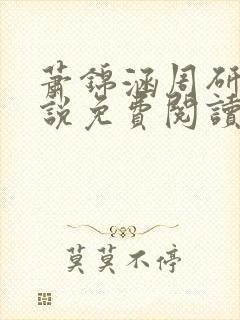 蕭錦涵周研
說免費閱讀
莫莫不停